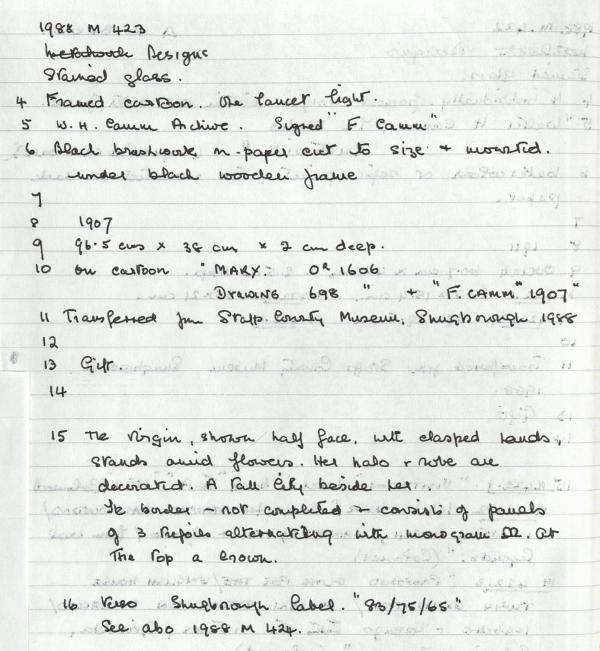 1988 M 423
Designs
Stained glass.
4 Framed cartoon. One lancet light.
5 W. H. Camm Archive. Signed "F Camm"
6 Black brushwork on paper cut to size + mounted.
under black wooden frame
7
8 1907
9 96.5 cms x 38 cm x 2 cm deep.
10 On cartoon "MARY. OR 1606
DRAWING 698 " + "F. CAMM" 1907"
11 Transferred from Staffs. County Museum, Shugborough 1988
12
13 Gift.
14
15 The Virgin, shown half face, with clasped hands,
stands amid flowers. Her halo + robe are
decorated. A tall lily beside her.
The border - not completed - consists of panels
of 3 trefoils alternating with monogram M. At
the top a crown.
16 Verso Shugborough label. "83/75/65"
See also 1988 M 424.